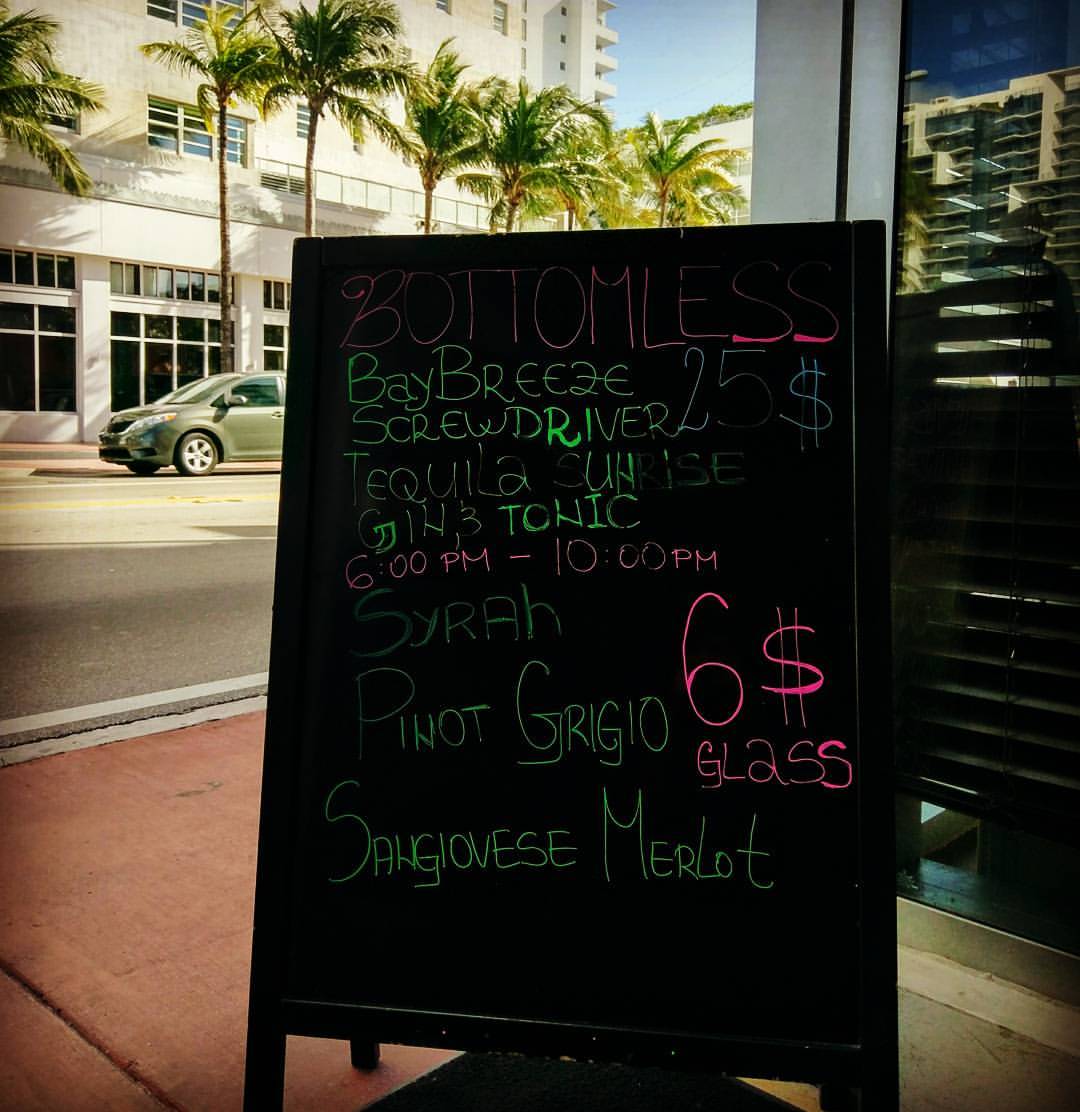 BOTTOMLESS
BayBREEZE 25$
SCREWDRIVER
TEQUILa SUNRISE
GIN & TONIC
6:00 PM - 10:00PM
SYRAh
PINOT GRIGIO 6$
GLaSS
SANGIOVESE MERLot